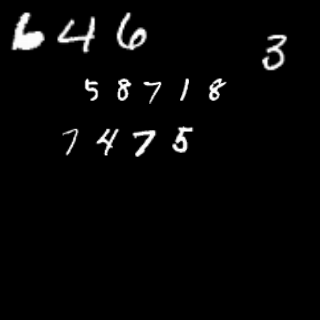 646
3
58718
7475